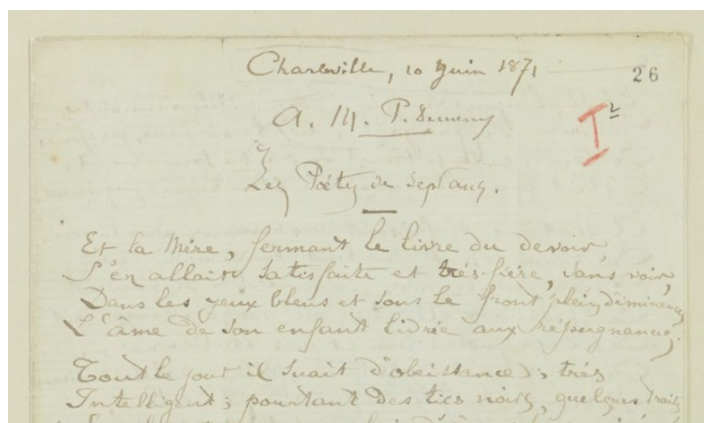 Charleville, 10 Juin 1871
26
A. M. P. Demeny
I
Les Poètes de sept ans.
Et la Mère, fermant le livre du devoir,
S'en allait satisfaite et très-fière, sans voir,
Dans les yeux bleus et sous le front plein d'éminences,
L'âme de son enfant livrée aux répugnances.
Tout le jour il suait d'obéissance ; très
Intelligent ; pourtant des tics noirs, quelques traits